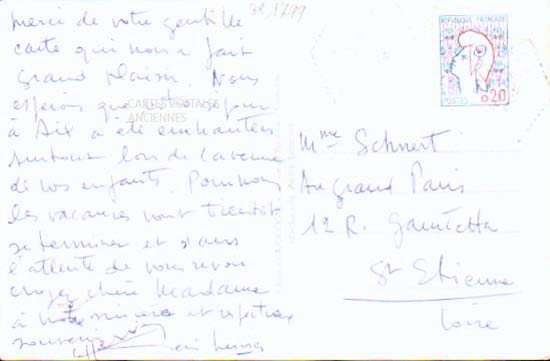 38.1799
merci de votre gentille
carte qui nous a fait
grand plaisir. Nous
espérons que séjour
à Aix a été enchanteur
surtout lors de la venue
de vos enfants. Pour nous
les vacances vont bientôt
se terminer et dans
l'attente de vous revoir
croyez chère Madame
à sincère et respectueux
souvenir
CARTES POSTALES
ANCIENNES
REPUBLIQUE FRANÇAISE
POSTES
0,20
Mme Schnert
Au grand Paris
12 R. Gambetta
St Etienne
Loire